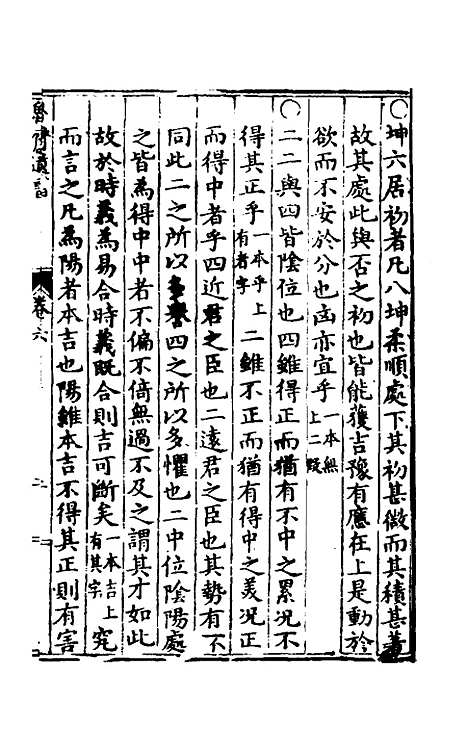 ○坤六居初者凡八坤柔順處下其初甚微而其積甚著
故其處此與否之初也皆能獲吉豫有應在上是動於
欲而不安於分也凶亦宜乎一本無上二段
○二二與四皆陰位也四雖得正而猶有不中之累况不
得其正乎一本乎上有者字二雖不正而猶有得中之美况正
而得中者乎四近君之臣也二遠君之臣也其勢有不
同此二之所以多譽四之所以多懼也二中位陰陽處
之皆為得中中者不偏不倚無過不及之謂其才如此
故於時義為易合時義既合則吉可斷矣一本吉上有其字究
而言之凡為陽者本吉也陽雖本吉不得其正則有害
魯齋遺書 卷六 二